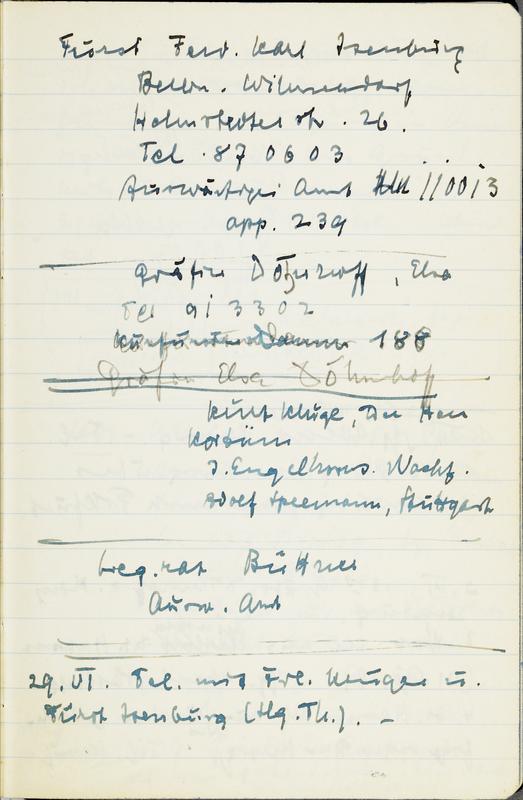 Fürst Ferd. Karl Isenburg
Berlin. Wilmersdorf
Helmstedter str. 26.
Tel. 87 06 03
Auswärtiges Amt 110013
app. 239
Gräfin Dönhoff, Elsa
Tel 913302
Kurfürstendamm 188
Gräfin Elsa Dönhoff
Kurt Kluge, Der Herr
Kortüm
J. Engelhorns. Nachf.
Adolf Spemann, Stuttgart
Leg.rat Büttner
Ausw. Amt
29. VI. Tel. mit Frl. u.
Fürst Isenburg (Hlg. Th.). –